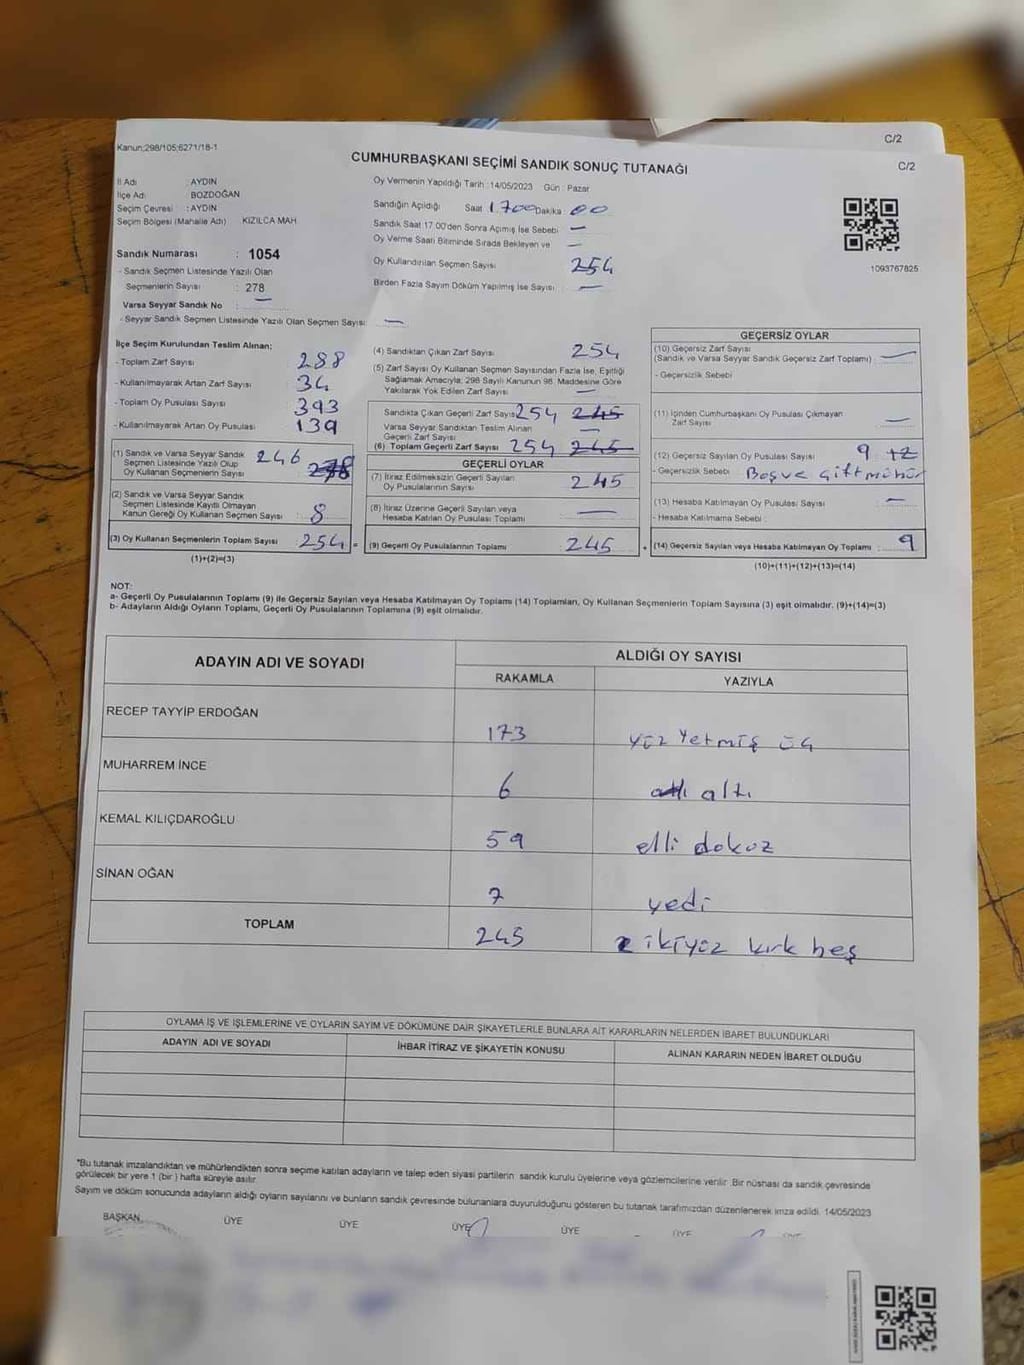 C/2
Kanun;298/105;6271/18-1
C/2
CUMHURBAŞKANI SEÇİMİ SANDIK SONUÇ TUTANAĞI
İl Adı : AYDIN
İlçe Adı : BOZDOĞAN
Seçim Çevresi : AYDIN
Seçim Bölgesi (Mahalle Adı) KIZILCA MAH.
Sandık Numarası : 1054
- Sandık Seçmen Listesinde Yazılı Olan
Seçmenlerin Sayısı : 278
Varsa Seyyar Sandık No : —
- Seyyar Sandık Seçmen Listesinde Yazılı Olan Seçmen Sayısı: —
Oy Vermenin Yapıldığı Tarih : 14/05/2023 Gün : Pazar
Sandığın Açıldığı Saat 1700 Dakika 00
Sandık Saat 17.00'den Sonra Açımış İse Sebebi —
Oy Verme Saati Bitiminde Sırada Bekleyen ve —
Oy Kullandırılan Seçmen Sayısı 254
Birden Fazla Sayım Döküm Yapılmış İse Sayısı : —
1093767825
İlçe Seçim Kurulundan Teslim Alınan;
- Toplam Zarf Sayısı 288
- Kullanılmayarak Artan Zarf Sayısı 34
- Toplam Oy Pusulası Sayısı 393
- Kullanılmayarak Artan Oy Pusulası 139
(1) Sandık ve Varsa Seyyar Sandık
Seçmen Listesinde Yazılı Olup
Oy Kullanan Seçmenlerin Sayısı 246 278
(2) Sandık ve Varsa Seyyar Sandık
Seçmen Listesinde Kayıtlı Olmayan
Kanun Gereği Oy Kullanan Seçmen Sayısı : 8
(3) Oy Kullanan Seçmenlerin Toplam Sayısı : 254 =
(1)+(2)=(3)
(4) Sandıktan Çıkan Zarf Sayısı 254
(5) Zarf Sayısı Oy Kullanan Seçmen Sayısından Fazla İse, Eşitliği
Sağlamak Amacıyla; 298 Sayılı Kanunun 98. Maddesine Göre
Yakılarak Yok Edilen Zarf Sayısı : —
Sandıkta Çıkan Geçerli Zarf Sayısı 254 245
Varsa Seyyar Sandıktan Teslim Alınan
Geçerli Zarf Sayısı —
(6) Toplam Geçerli Zarf Sayısı 254 245
GEÇERLİ OYLAR
(7) İtiraz Edilmeksizin Geçerli Sayılan
Oy Pusulalarının Sayısı : 245
(8) İtiraz Üzerine Geçerli Sayılan veya
Hesaba Katılan Oy Pusulası Toplamı —
(9) Geçerli Oy Pusulalarının Toplamı : 245 +
GEÇERSİZ OYLAR
(10) Geçersiz Zarf Sayısı
(Sandık ve Varsa Seyyar Sandık Geçersiz Zarf Toplamı) : —
- Geçersizlik Sebebi
(11) İçinden Cumhurbaşkanı Oy Pusulası Çıkmayan
Zarf Sayısı —
(12) Geçersiz Sayılan Oy Pusulası Sayısı 9
- Geçersizlik Sebebi : Boş ve çift mühür
(13) Hesaba Katılmayan Oy Pusulası Sayısı : —
- Hesaba Katılmama Sebebi :
(14) Geçersiz Sayılan veya Hesaba Katılmayan Oy Toplamı : 9
(10)+(11)+(12)+(13)=(14)
NOT:
a- Geçerli Oy Pusulalarının Toplamı (9) ile Geçersiz Sayılan veya Hesaba Katılmayan Oy Toplamı (14) Toplamları, Oy Kullanan Seçmenlerin Toplam Sayısına (3) eşit olmalıdır. (9)+(14)=(3)
b- Adayların Aldığı Oyların Toplamı, Geçerli Oy Pusulalarının Toplamına (9) eşit olmalıdır.
ADAYIN ADI VE SOYADI ALDIĞI OY SAYISI
RAKAMLA YAZIYLA
RECEP TAYYİP ERDOĞAN 173 yüz yetmiş üç
MUHARREM İNCE 6 altı
KEMAL KILIÇDAROĞLU 59 elli dokuz
SİNAN OĞAN 7 yedi
TOPLAM 245 ikiyüz kırk beş
OYLAMA İŞ VE İŞLEMLERİNE VE OYLARIN SAYIM VE DÖKÜMÜNE DAİR ŞİKAYETLERLE BUNLARA AİT KARARLARIN NELERDEN İBARET BULUNDUKLARI
ADAYIN ADI VE SOYADI İHBAR İTİRAZ VE ŞİKAYETİN KONUSU ALINAN KARARIN NEDEN İBARET OLDUĞU
*Bu tutanak imzalandıktan ve mühürlendikten sonra seçime katılan adayların ve talep eden siyasi partilerin sandık kurulu üyelerine veya gözlemcilerine verilir. Bir nüshası da sandık çevresinde
görülecek bir yere 1 (bir ) hafta süreyle asılır.
Sayım ve döküm sonucunda adayların aldığı oyların sayılarını ve bunların sandık çevresinde bulunanlara duyurulduğunu gösteren bu tutanak tarafımızdan düzenlenerek imza edildi. 14/05/2023
BAŞKAN ÜYE ÜYE ÜYE ÜYE ÜYE ÜYE